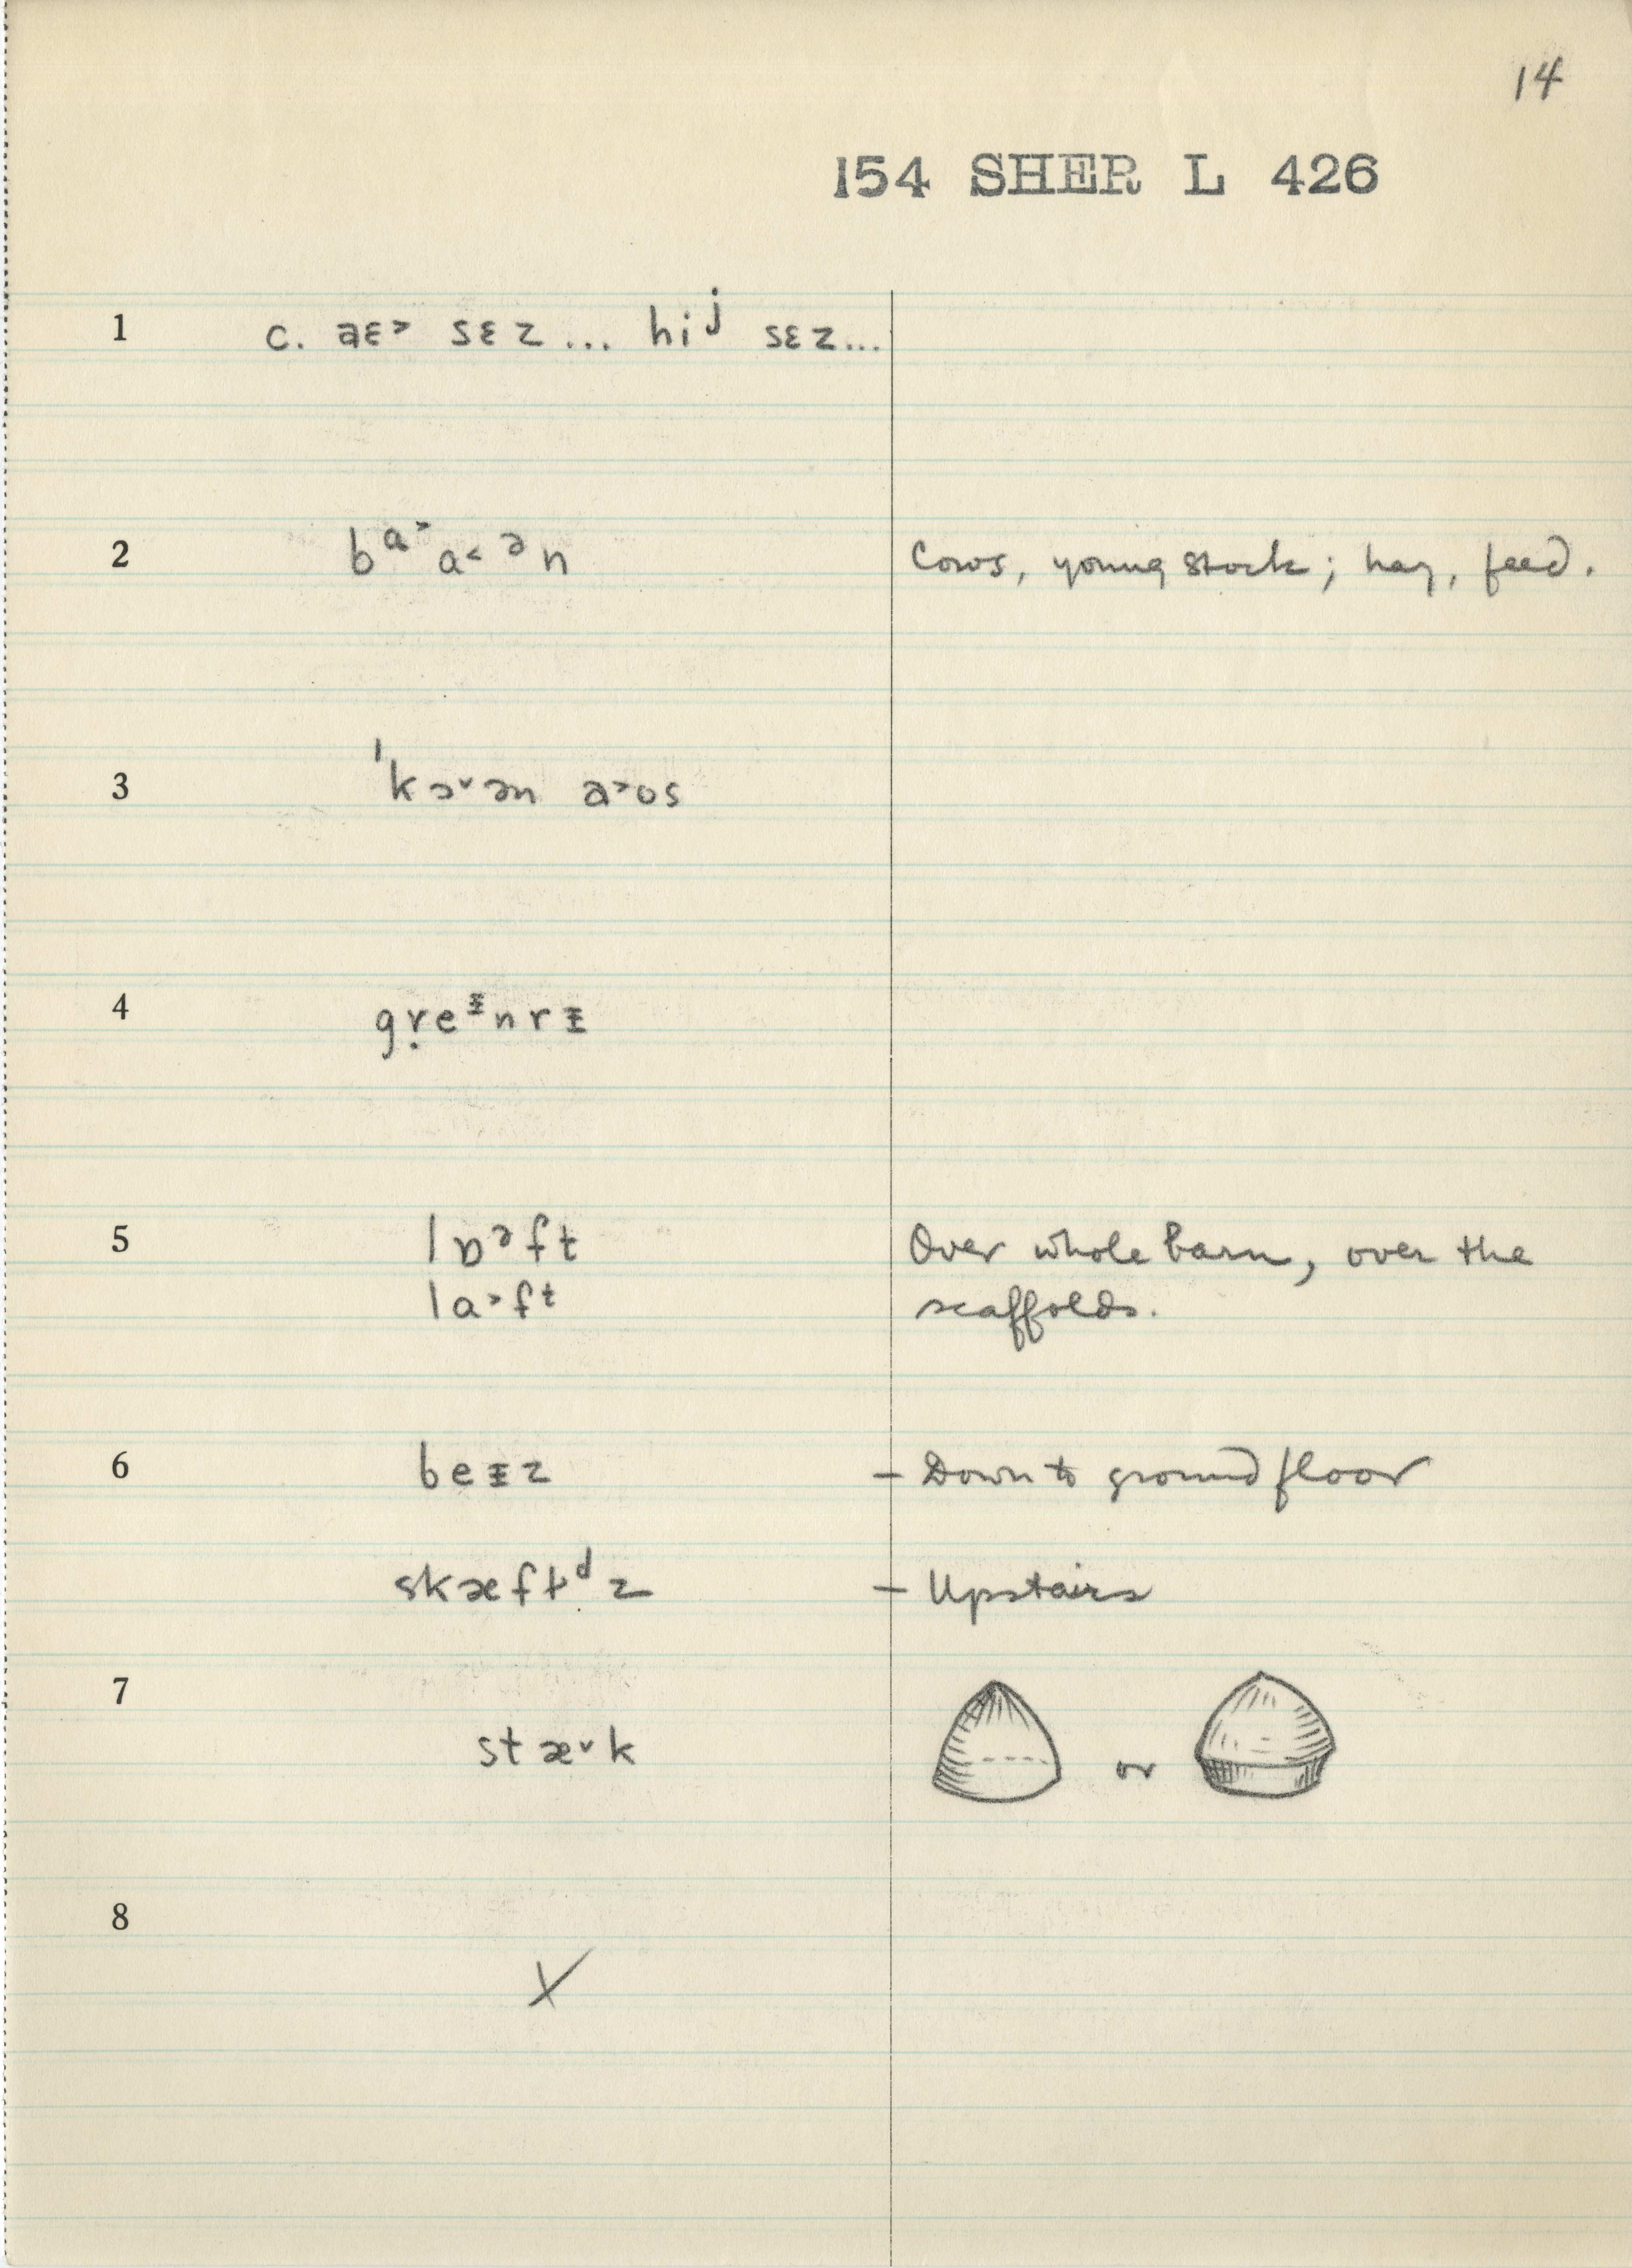 14
154 SHER L 426
1 c. aɛ˃ sɛz... hiʲ sɛz...
2 bᵃ˃a˂ᵊn Cows, young stock; hay, feed.
3 ˈkɔ˅ən a˃os
4 gṛeᵻnrᵻ
5 lɒᵊft Over whole barn, over the
la˃fᵗ scaffolds.
6 beᵻz - Down to ground floor
skæftᵈz - Upstairs
7 stæ˅k or
8 X